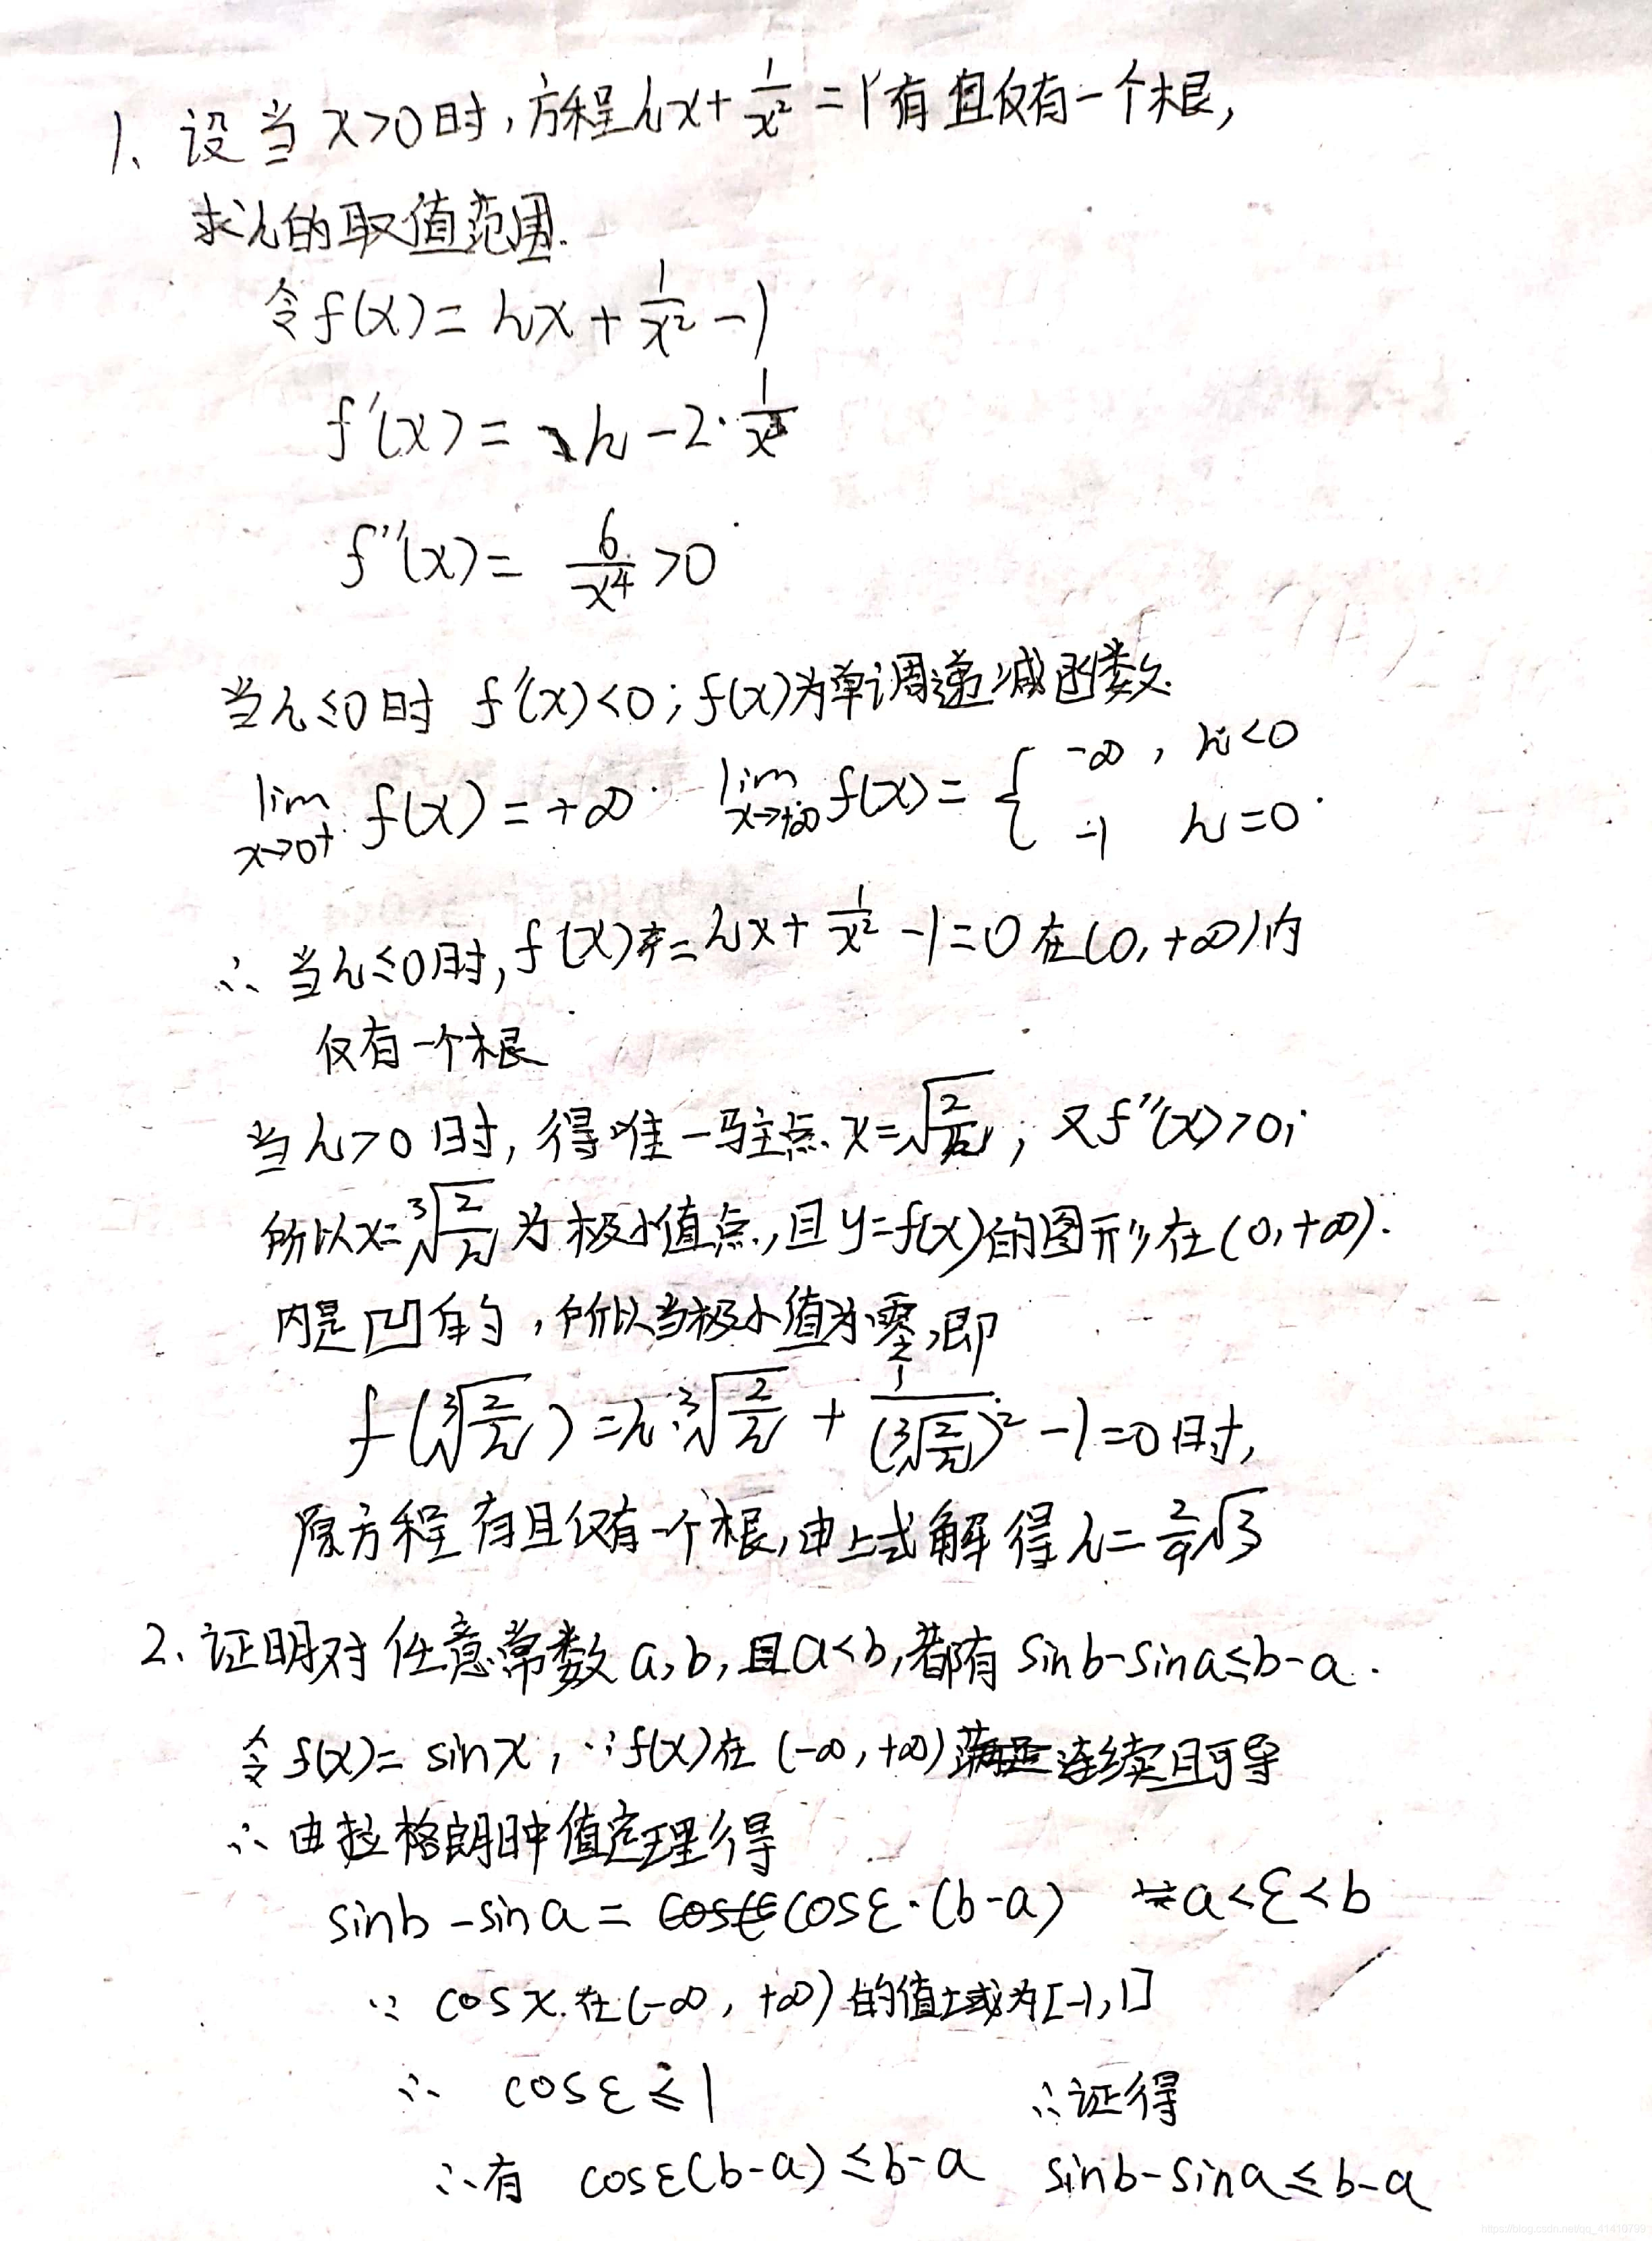 1、设当 x>0时,方程hx+1/x²=1有且仅有一个根,
求h的取值范围.
令f(x)=hx+1/x²-1
f'(x)=h-2·1/x³
f''(x)=6/x⁴>0
当h≤0时 f'(x)<0;f(x)为单调递减函数.
lim x→0⁺ f(x)=+∞ lim x→+∞ f(x)={ -∞, h<0
-1 h=0
∴当h≤0时,f(x)=hx+1/x²-1=0在(0,+∞)内
仅有一个根
当h>0时,得唯一驻点x=√(2/h);又f''(x)>0;
所以x=³√(2/h)为极小值点,且y=f(x)的图形在(0,+∞).
内是凹的,所以当极小值为零,即
f(³√(2/h))=h·³√(2/h)+1/(³√(2/h))²-1=0时,
原方程有且仅有一个根,由上式解得h=2/9√3
2、证明对任意常数a,b,且a<b,都有sinb-sina≤b-a.
令f(x)=sinx,∵f(x)在(-∞,+∞)连续且可导
∴由拉格朗日中值定理得
sinb-sina=cosε·(b-a) a<ε<b
∵cosx.在(-∞,+∞)的值域为[-1,1]
∴ cosε≤1 ∴证得
∴有 cosε(b-a)≤b-a sinb-sina≤b-a
https://blog.csdn.net/qq_41410799